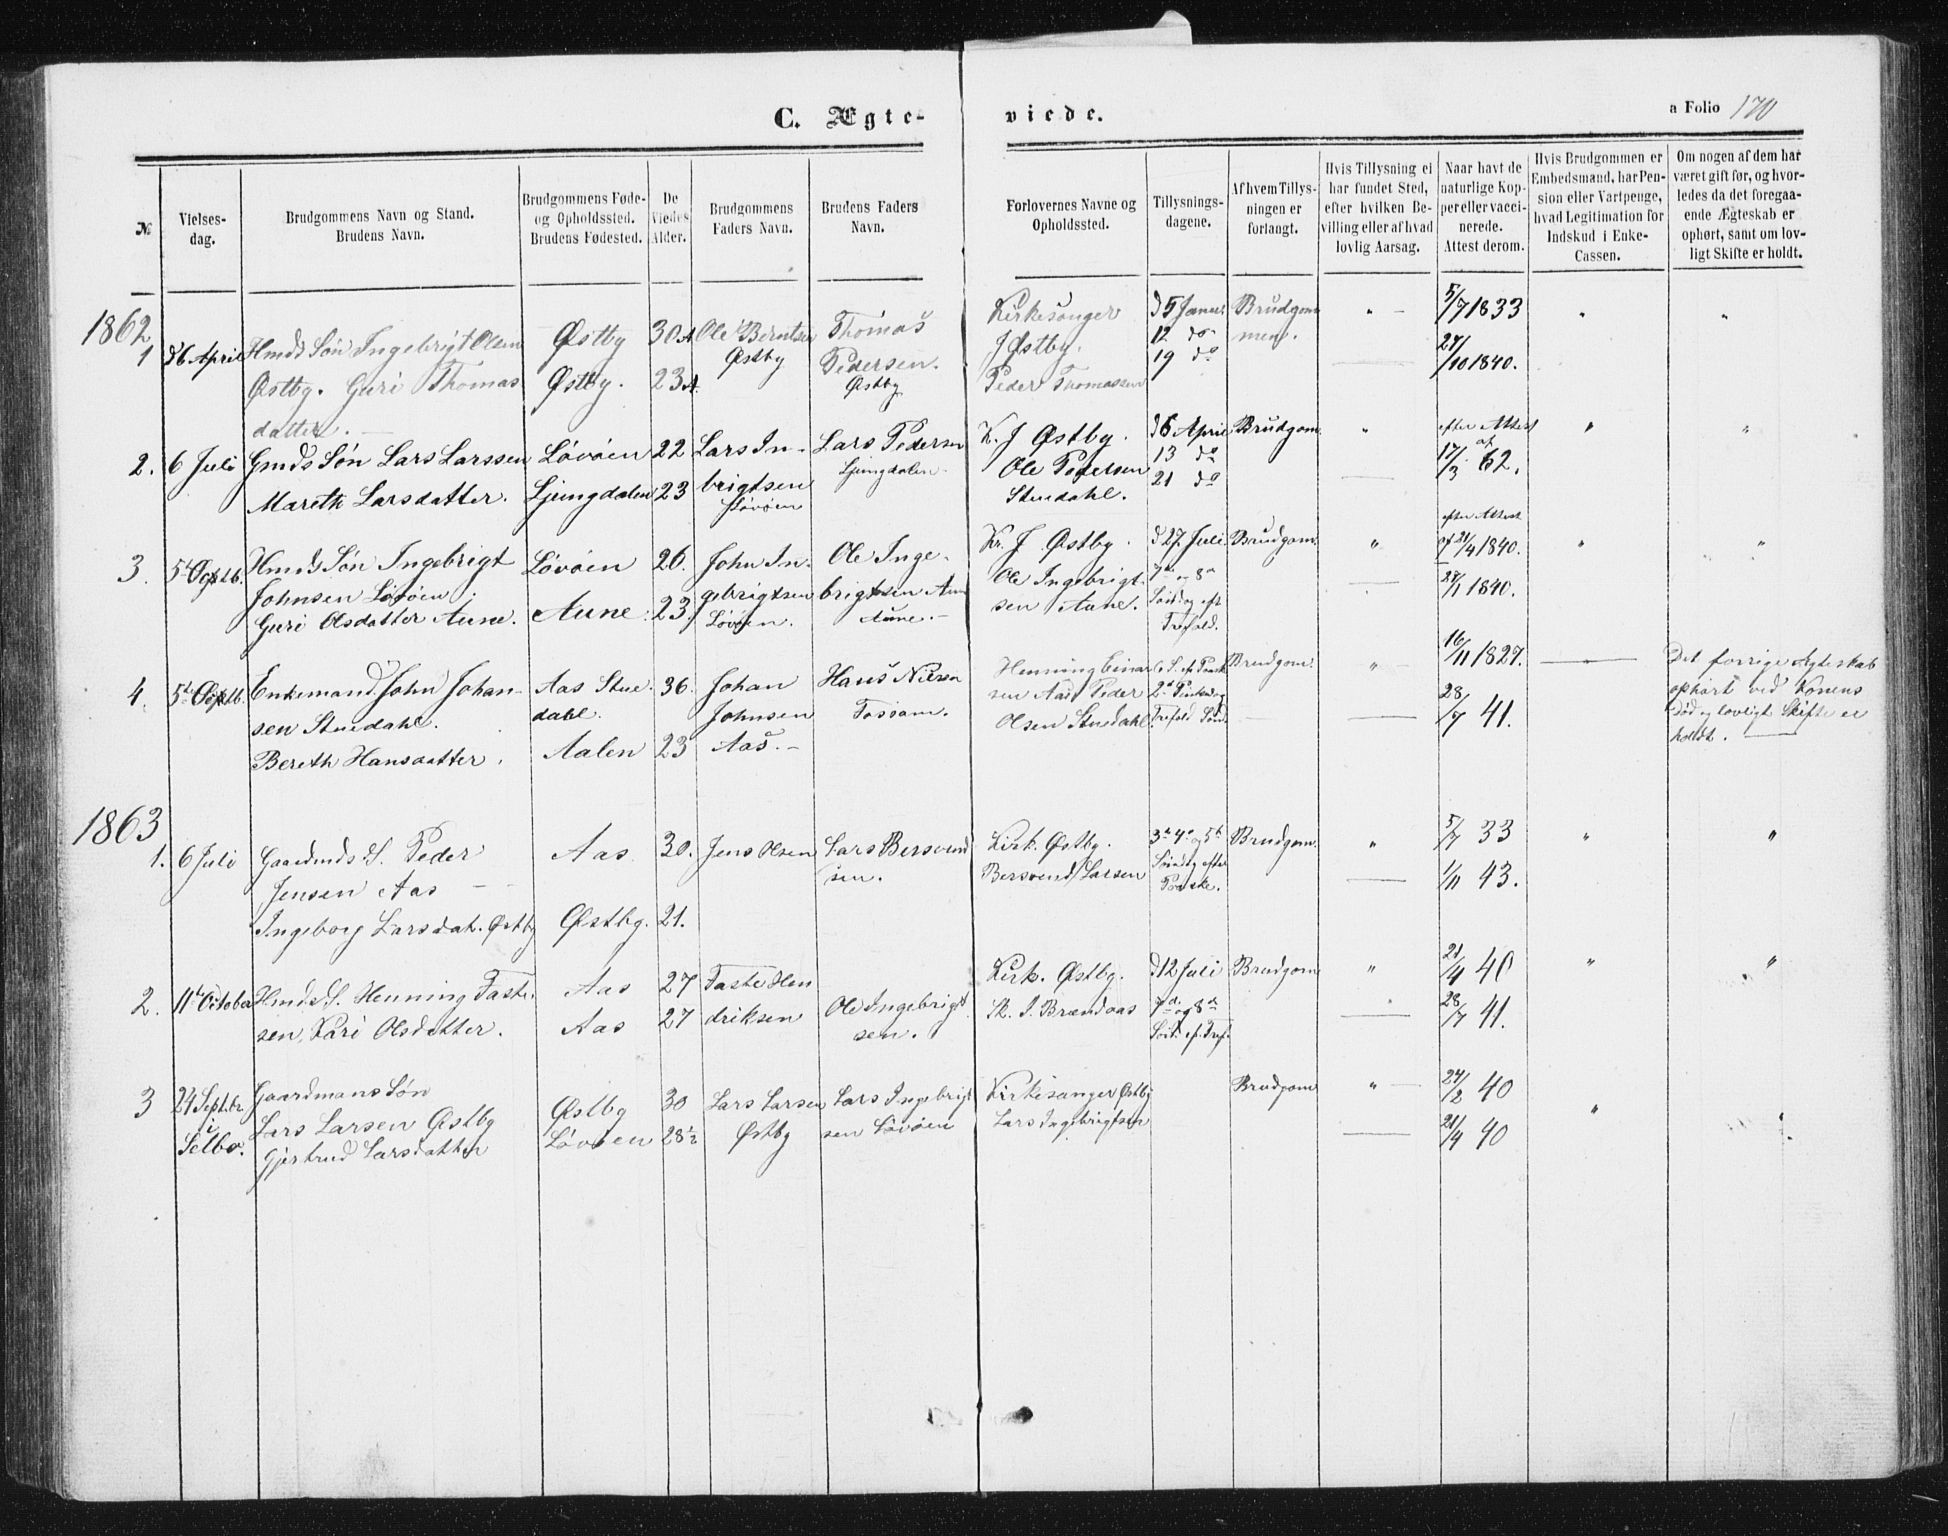 C. Ægte-
viede.
a Folio 170
№
Vielses-
dag.
Brudgommens Navn og Stand.
Brudens Navn.
Brudgommens Føde-
og Opholdssted.
Brudens Fødested.
De
Viedes
Alder.
Brudgommens
Faders Navn.
Brudens Faders
Navn.
Forlovernes Navne og
Opholdssted.
Tillysnings-
dagene.
Af hvem Tillys-
ningen er
forlangt.
Hvis Tillysning ei
har fundet Sted,
efter hvilken Be-
villing eller af hvad
lovlig Aarsag.
Naar havt de
naturlige Kop-
per eller vacci-
nerede.
Attest derom.
Hvis Brudgommen er
Embedsmand, har Pen-
sion eller Vartpenge,
hvad Legitimation for
Indskud i Enke-
Cassen.
Om nogen af dem har
været gift før, og hvor-
ledes da det foregaa-
ende Ægteskab er
ophørt, samt om lov-
ligt Skifte er holdt.
1862
1
d 6 April
Hmds Søn Ingebrigt Olsen
Østby. Guri Thomas
datter. —
Østby
Østby.
30 A
23 A
Ole Berntsen
Østby
Thomas
Pedersen.
Østby
Kirkesanger
J Østby.
Peder Thomassen
d 5 Januar
12 do
19 do
Brudgom
men.
" —
5/7 1833
27/10 1840.
"
"
2.
6 Juli
Gmds Søn Lars Larssen
Mareth Larsdatter.
Løvøen
Ljungdalen
22
23
Lars In-
brigtsen
Løvøen
Lars Pedersen
Ljungdalen
K. J Østby.
Ole Pedersen
Stuedahl.
d 6 April
13 do
21 do
Brudgom
"
efter Attest
af
17/3 62.
"
"
3.
Hmds Søn Ingebrigt
Johnsen Løvøen.
Guri Olsdatter Aune.
Løvøen
Aune.
26.
23.
John In-
gebrigtsen
Løvøen.
Ole Inge-
brigtsen Aune
Aune. —
Kr. J Østby.
Ole Ingebrigt-
sen Aune.
d 27 Juli
7de og 8de
Sønd og eft
Trefold.
Brudgom.
"
efter Attest
af 21/4 1840.
27/1 1840.
"
"
4.
Enkemand John Johan-
sen Stuedahl.
Bereth Hansdatter.
Aas Stue-
dahl.
Aalen
36.
23
Johan
Johnsen
Aas. —
Hans Nilsen
Henning Einar
sen Aas Peder
Olsen Stuedahl
Trefold Sønd.
Brudgom.
" —
16/11 1827.
28/7 41.
Det forrige Ægteskab
ophørt ved Konens
Død og lovligt Skifte er
holdt. —
1863
1.
6 Juli
Gaardmds S. Peder
Jensen Aas — —
Ingeborg Larsdat. Østby
Aas
Østby.
30.
21.
Jens Olsen
Lars Bersvend
sen.
Kirk. Østby.
Bersvend Larsen
3de 4de og 5te
Søndg efter
Paaske.
Brudgom.
"
5/7 33
1/11 43.
"
"
2.
11te October
Hmds S. Henning Taste-
sen, Kari Olsdatter.
Aas
Aas
27
27
Taste Hen
driksen
Ole Ingebrigt
sen.
Kirk. Østby.
Sk. J. Brændaas
d 12 Juli
7de og 8de
Sønd. ef. Tref.
Brudgom
"
21/4 40
28/7 41.
"
"
3
24 Septbr.
i
Selbo.
Gaardmans Søn
Lars Larsen Østby
Gjertrud Larsdatter
Østby
Løvøen
30
28½
Lars Larsen
Østby
Lars Ingebrigt
sen Løvøen
Kirkesanger Østby
Lars Ingebrigtsen
Brudgom
" —
24/2 40
21/4 40
"
"